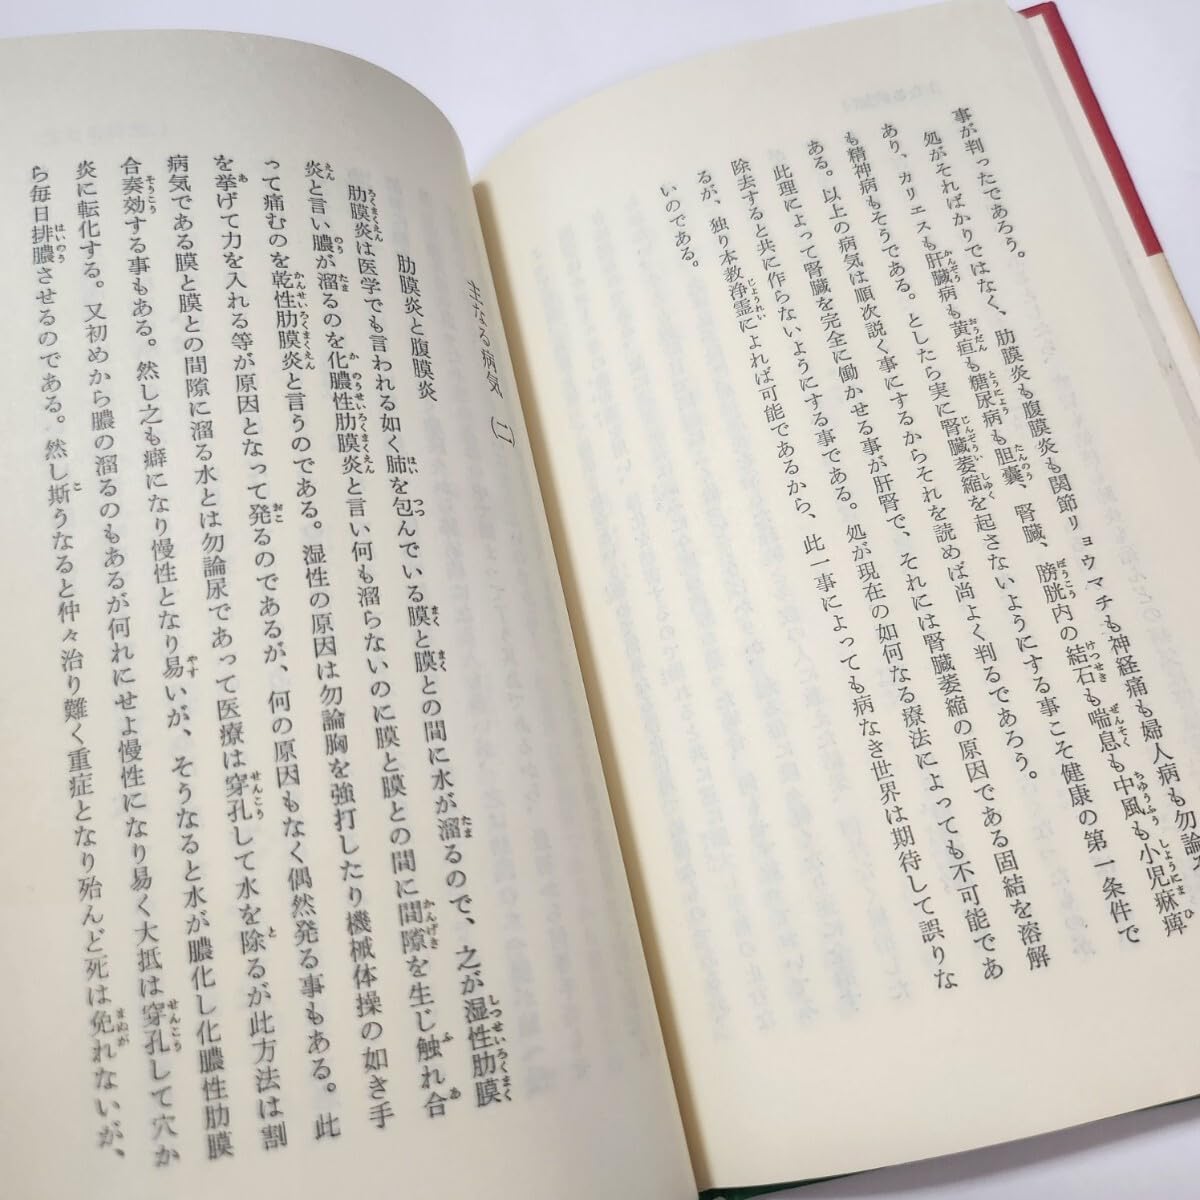 事が判ったであろう。
処がそればかりではなく、肋膜炎も腹膜炎も関節リョウマチも神経痛も婦人病も勿論
あり、カリエスも肝臓病も黄疸も糖尿病も胆嚢、腎臓、膀胱内の結石も喘息も中風も小児麻痺
も精神病もそうである。としたら実に腎臓萎縮を起さないようにする事こそ健康の第一条件で
ある。以上の病気は順次説く事にするからそれを読めば尚よく判るであろう。
此理によって腎臓を完全に働かせる事が肝腎で、それには腎臓萎縮の原因である固結を溶解
除去すると共に作らないようにする事である。処が現在の如何なる療法によっても不可能であ
るが、独り本教浄霊によれば可能であるから、此一事によっても病なき世界は期待して誤りな
いのである。
主なる病気(二)
肋膜炎と腹膜炎
肋膜炎は医学でも言われる如く肺を包んでいる膜と膜との間に水が溜るので、之が湿性肋膜
炎と言い膿が溜るのを化膿性肋膜炎と言い何も溜らないのに膜と膜との間に間隙を生じ触れ合
って痛むのを乾性肋膜炎と言うのである。湿性の原因は勿論胸を強打したり機械体操の如き手
を挙げて力を入れる等が原因となって発るのであるが、何の原因もなく偶然発る事もある。此
病気である膜と膜との間隙に溜る水とは勿論尿であって医療は穿孔して水を除るが此方法は割
合奏効する事もある。然し之も癖になり慢性となり易いが、そうなると水が膿化し化膿性肋膜
炎に転化する。又初めから膿の溜るのもあるが何れにせよ慢性になり易く大抵は穿孔して穴か
ら毎日排膿させるのである。然し斯うなると仲々治り難く重症となり殆んど死は免れないが、